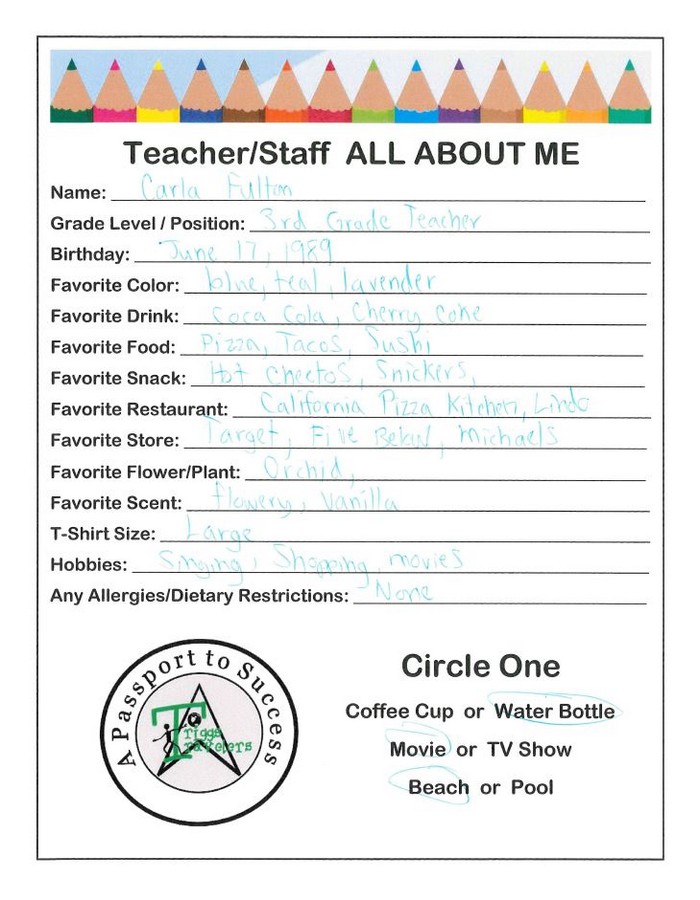 Teacher/Staff ALL ABOUT ME
Name: Carla Fulton
Grade Level / Position: 3rd Grade Teacher
Birthday: June 17, 1989
Favorite Color: blue, teal, lavender
Favorite Drink: Coca Cola, Cherry Coke
Favorite Food: Pizza, Tacos, Sushi
Favorite Snack: Hot Cheetos, Snickers,
Favorite Restaurant: California Pizza Kitchen, Lindo
Favorite Store: Target, Five Below, Michaels
Favorite Flower/Plant: Orchid,
Favorite Scent: flowery, Vanilla
T-Shirt Size: Large
Hobbies: Singing, Shopping, movies
Any Allergies/Dietary Restrictions: None
A Passport to Success
Triggs
Travelers
Circle One
Coffee Cup or Water Bottle
Movie or TV Show
Beach or Pool